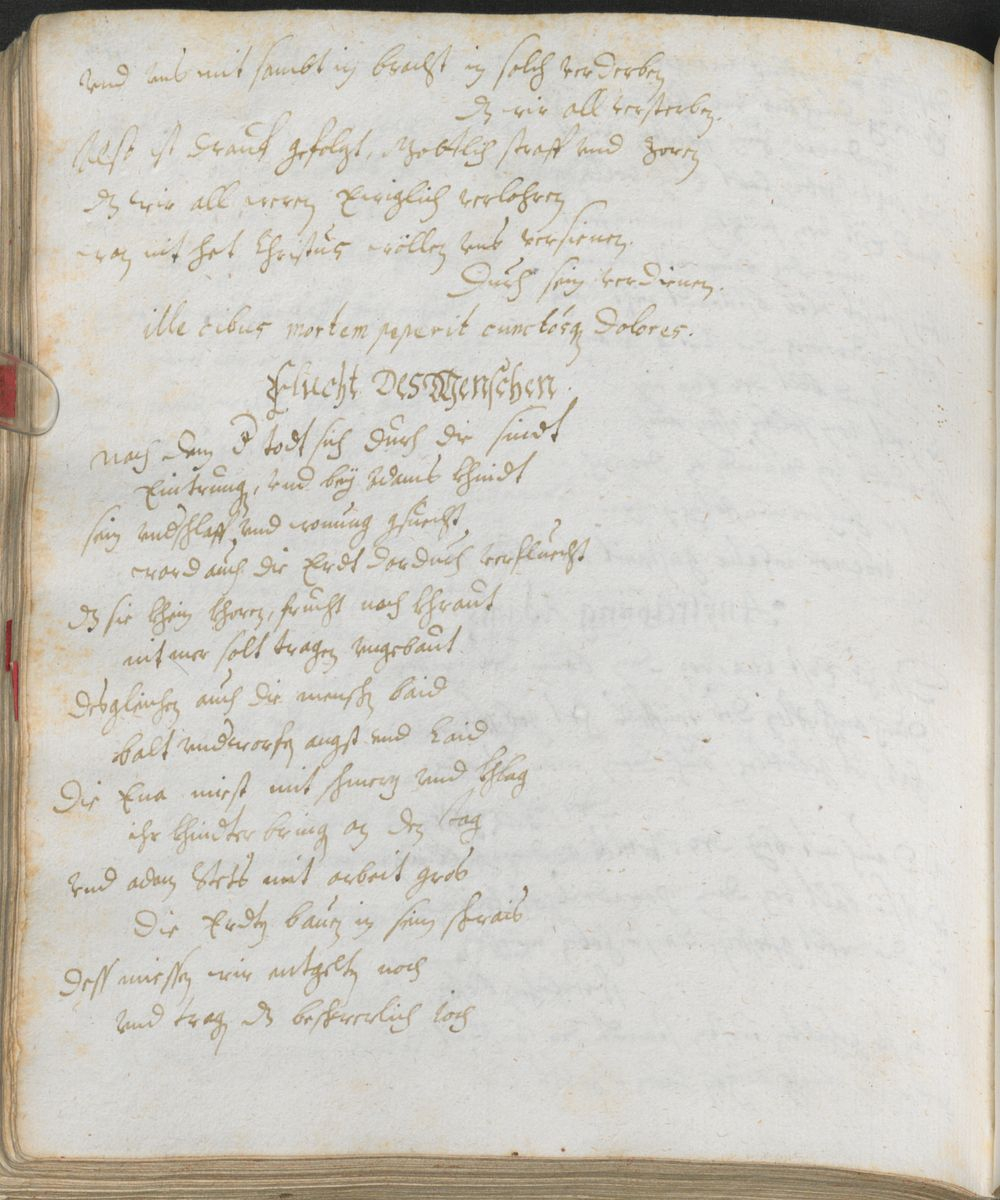 vnd vns mit sambt in bracht in solch verderben
dz wir all versterben.
Alß ist drauf gefolgt, Gottlich straff und zoren
dz wir all weren Ewiglich verlohren
wan nit het Christus wöllen vns versienen.
Durch sein verdienen.
ille cibus mortem peperit cunctosq dolores.
Flucht Des Menschen.
nach dem d todt sich durch die sindt
Eintrung, vnd bey Adams khindt
sein vndschlaff, vnd wonung gsuecht
ward auch die Erdt dardurch verfluecht
dz sie khein khoren, frucht noch khraut
nit mer solt tragen vngebaut
desgleichen auch die menschen baid
balt vndworfen angst vnd Laid
Die Eua miest mit schmertz vnd khlag
ihr khindter bringen an den tag
vnd adam stets mit arbeit gros
die Erdten bauen in seim schwais
dess miessen wir entgelten noch
vnd tragen dz beschwerlich ioch